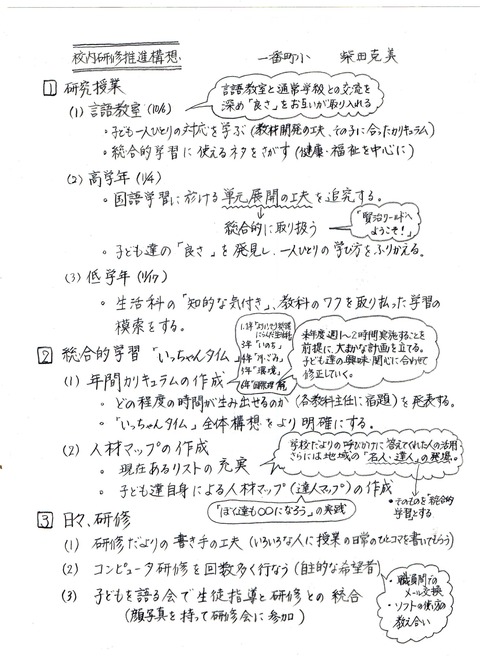 校内研修推進構想
一番町小 柴田克美
1 研究授業
言語教室と通常学校との交流を
深め"良さ"をお互いが取り入れる
(1) 言語教室 (10/6)
・子ども一人ひとりの対応を学ぶ (教材開発の工夫、その子に合ったカリキュラム)
・総合的学習に使えるネタをさがす (健康・福祉を中心に)
(2) 高学年 (11/4)
・国語学習に於ける単元展開の工夫を追究する。
総合的に取り扱う
「賢治ワールドへ
ようこそ!」
・子ども達の「良さ」を発見し、一人ひとりの学び方をふりかえる。
(3) 低学年 (11/17)
・生活科の「知的な気付き」、教科のワクを取り払った学習の
模索をする。
3年「いのち」
4年「川・ごみ」
5年「環境」
6年「国際理解」
来年度週1~2時間実施することを
前提に、大まかな計画を立てる。
子ども達の興味・関心に合わせて
修正していく。
2 総合的学習「いっちゃんタイム」
(1) 年間カリキュラムの作成
・どの程度の時間が生み出せるのか (各教科主任に宿題) を発表する。
・「いっちゃんタイム」全体構想をより明確にする。
(2) 人材マップの作成
学校だよりの呼びかけに答えてくれた人の活用
さらには地域の「名人・達人」の発掘。
・現在あるリストの充実
・子ども達自身による人材マップ (達人マップ) の作成
・そのものを「総合的
学習」とする
「ぼく達も〇〇になろう」の実践
3 日々、研修
(1) 研修だよりの書き手の工夫 (いろいろな人に授業の日常のひとコマを書いてもらう)
(2) コンピュータ研修を回数多く行なう (自主的な希望者)
・職員間での
メール交換
・ソフトの使い方の
教え合い
(3) 子どもを語る会で生徒指導と研修との統合
(顔写真を持って研修会に参加)